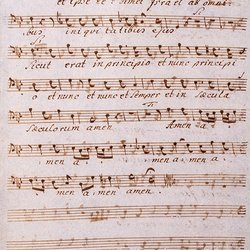 et Ipse redimet Israel ab omni
bus iniquitatibus ejus
Sicut erat in principio et nunc principi
o et nunc et nunc et semper et in sæcula
Sæculorum amen Amen a
men a men a men a
men amen amen.